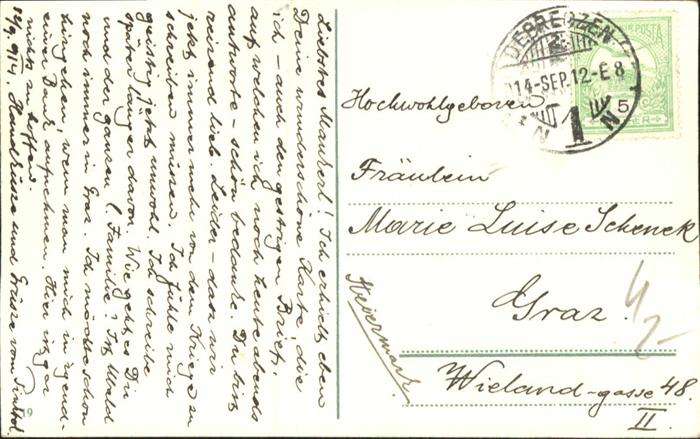 Liebstes Mauserl! Ich erhielt eben
Deine wunderschöne Karte die
ich – auch den gestrigen Brief,
auf welchen ich noch heute abends
antworte – schön bedanke. Du bist
reisend lieb. Leider – dass wir
jetzt immer mehr von dem Kriege zu
schreiben müssen. Ich fühle mich
geistig jetzt unwohl. Ich schreibe
später länger davon. Wie geht es Dir
und der ganzen (Familie? Ist Ewald
noch immer in Graz. Ich möchte schon
hingehen, wenn man mich in irgend-
einer Baur aufnehmen. Hier ist gar
nichts zu hoffen.
12/9. 914. Handküsse und Grüsse von
DEBRECZEN
914-SEP.12-E8
N 1 N
POSTA
5
Hochwohlgeboren
Fräulein
Marie Luise Schenck
Graz
Steiermark
Wieland-gasse 48
II.
4/2